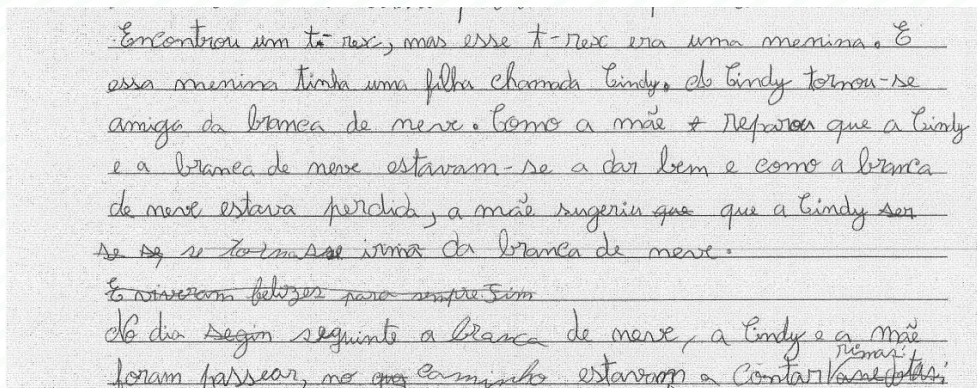 Encontrou um t-rex, mas esse t-rex era uma menina. E
essa menina tinha uma filha chamada Cindy. A Cindy tornou-se
amiga da branca de neve. Como a mãe reparou que a Cindy
e a branca de neve estavam-se a dar bem e como a branca
de neve estava perdida, a mãe sugeriu que que a Cindy ser
se se se tornasse irmã da branca de neve.
E viveram felizes para sempre Fim
No dia segin seguinte a branca de neve, a Cindy e a mãe
rimas,
foram passear, no caminho estavam a contar anedotas,